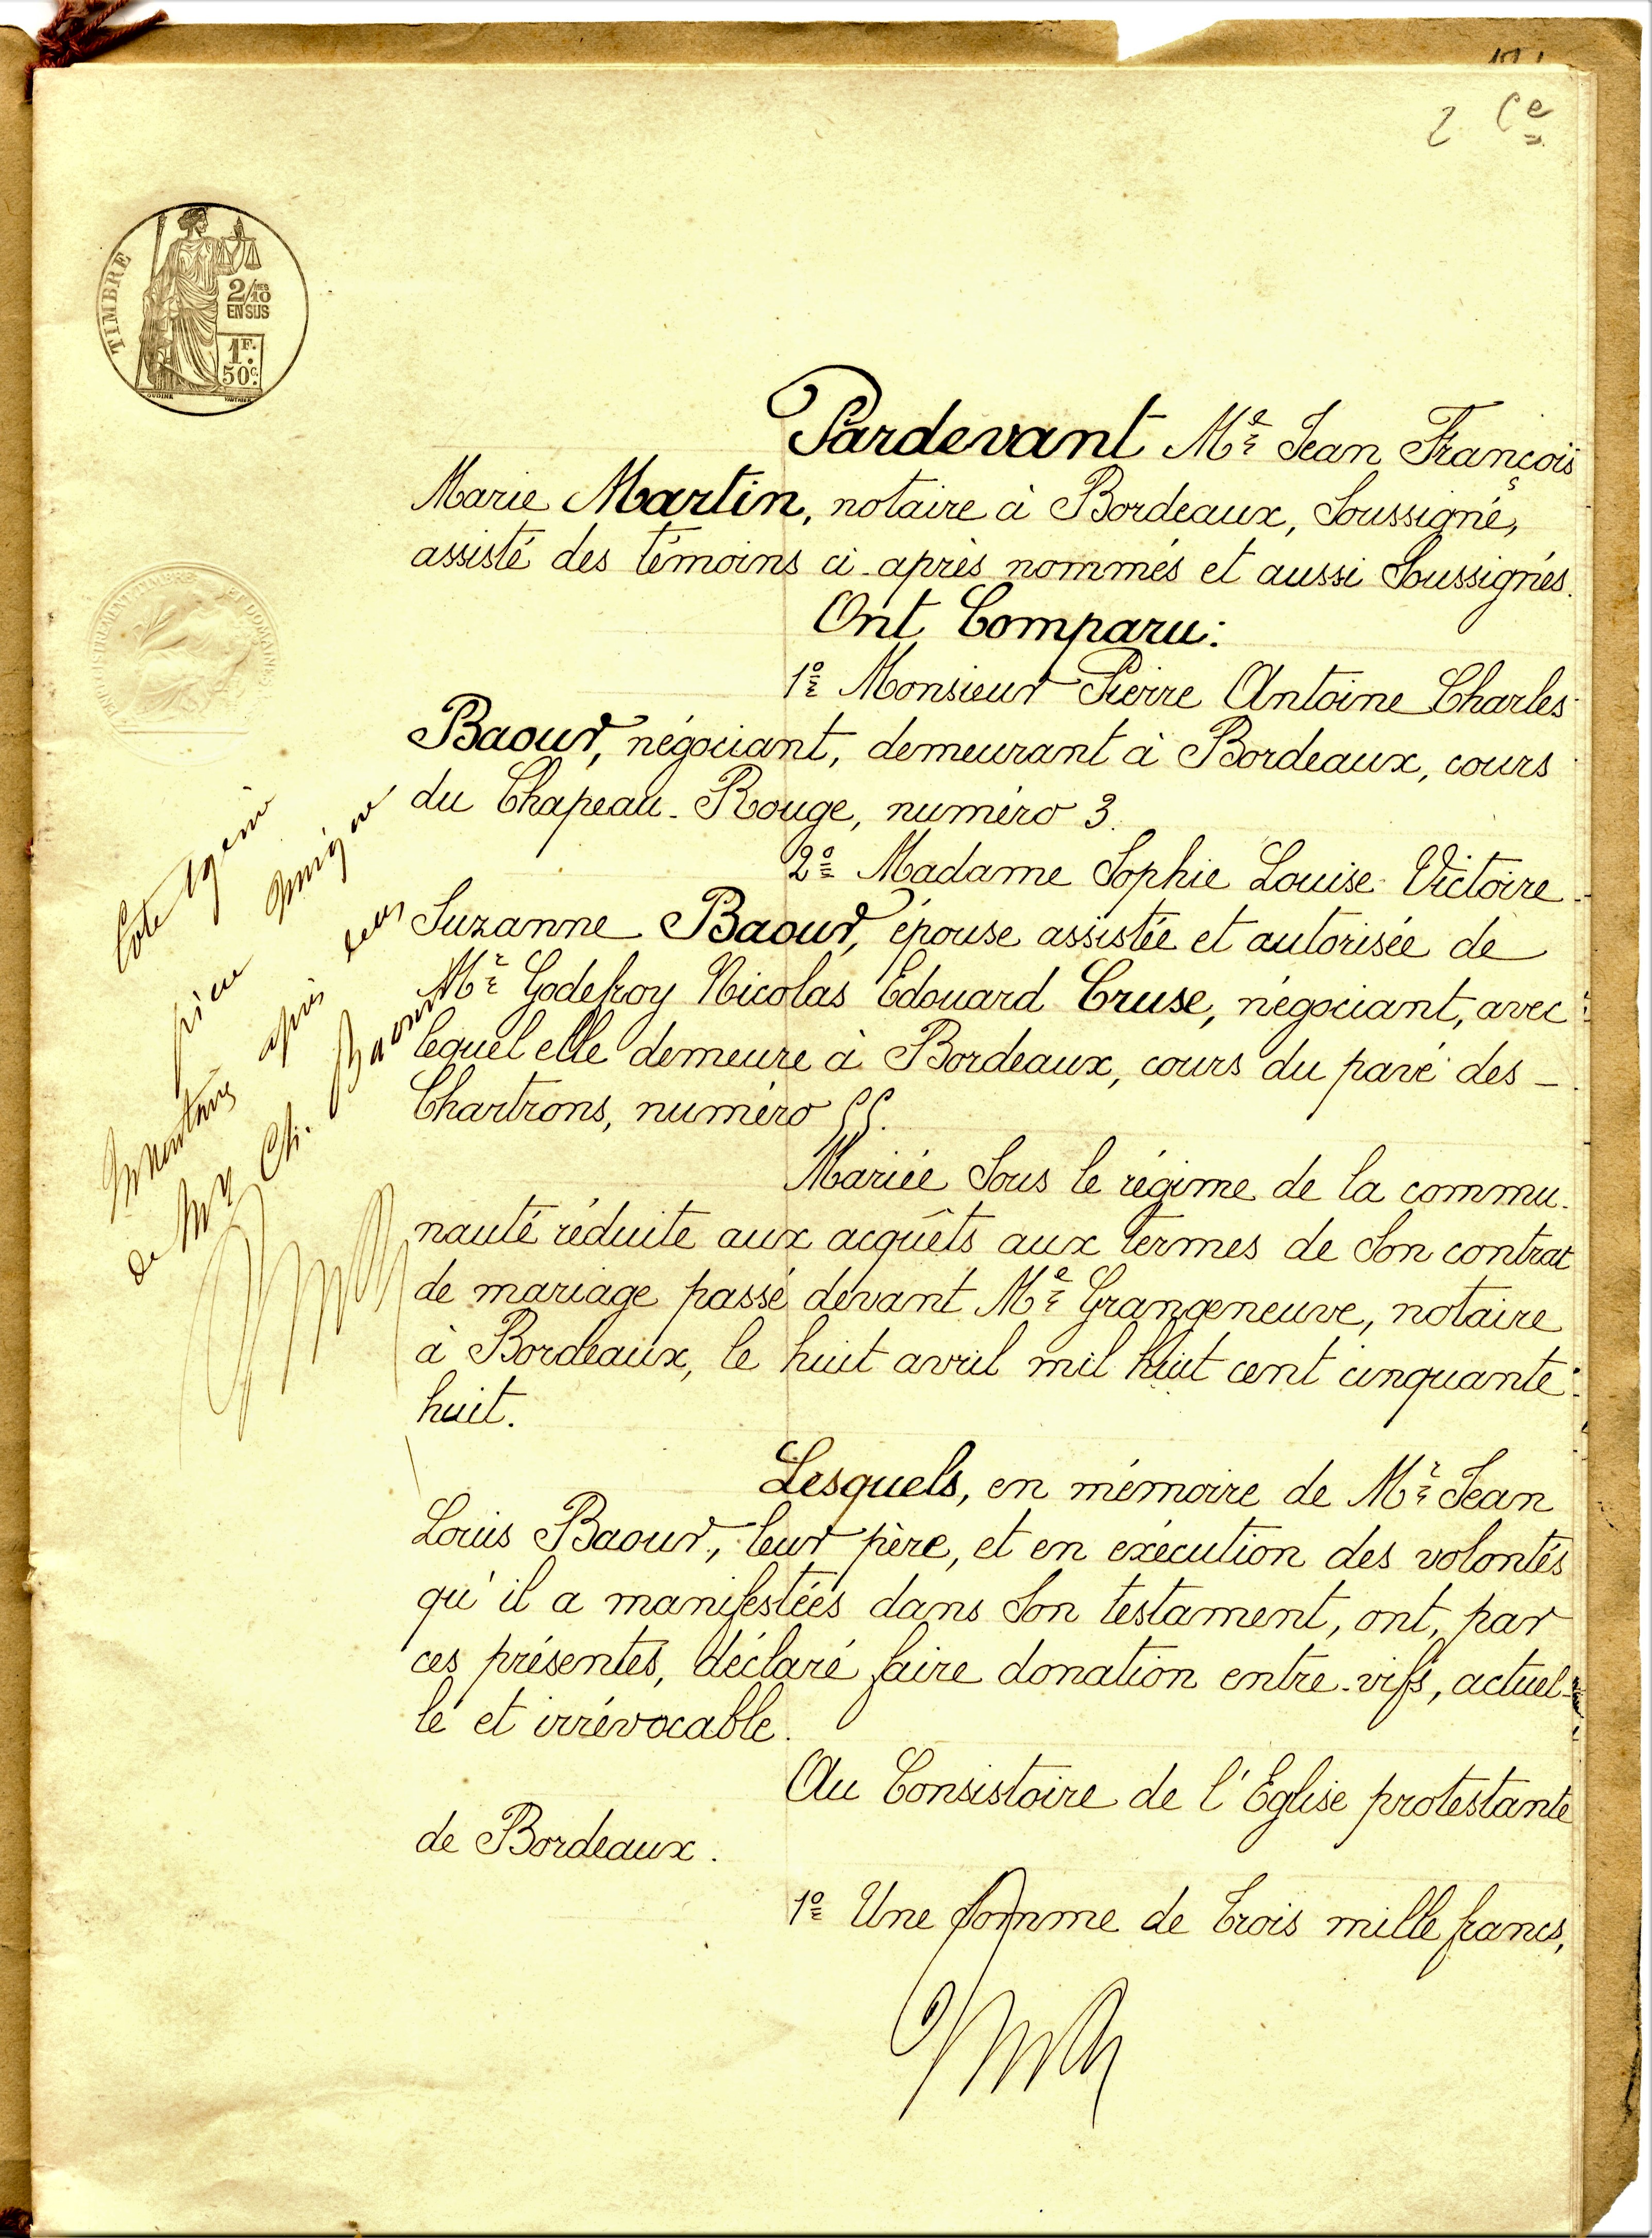 2 Ce
TIMBRE
2/10
MES
EN SUS
1F.
50c.
Pardevant Me Jean François
Marie Martin, notaire à Bordeaux, Soussigné,
assisté des témoins ci-après nommés et aussi Soussignés.
Ont Comparu:
1o Monsieur Pierre Antoine Charles
Baour, négociant, demeurant à Bordeaux, cours
du Chapeau-Rouge, numéro 3.
2o Madame Sophie Louise Victoire
Suzanne Baour, épouse assistée et autorisée de
Mr Godefroy Nicolas Edouard Cruse, négociant, avec
lequel elle demeure à Bordeaux, cours du pavé des
Chartrons, numéro 55.
Mariée Sous le régime de la commu-
nauté réduite aux acquêts aux termes de Son contrat
de mariage passé devant Me Grangeneuve, notaire
à Bordeaux, le huit avril mil huit cent cinquante
huit.
Lesquels, en mémoire de Mr Jean
Louis Baour, leur père, et en exécution des volontés
qu'il a manifestées dans Son testament, ont, par
ces présentes, déclaré faire donation entre-vifs, actuel-
le et irrévocable.
Au Consistoire de l'Eglise protestante
de Bordeaux.
1o Une Somme de Trois mille francs,
Cote
pièce unique
Inventaire après décès
de Mr Ch. Baour